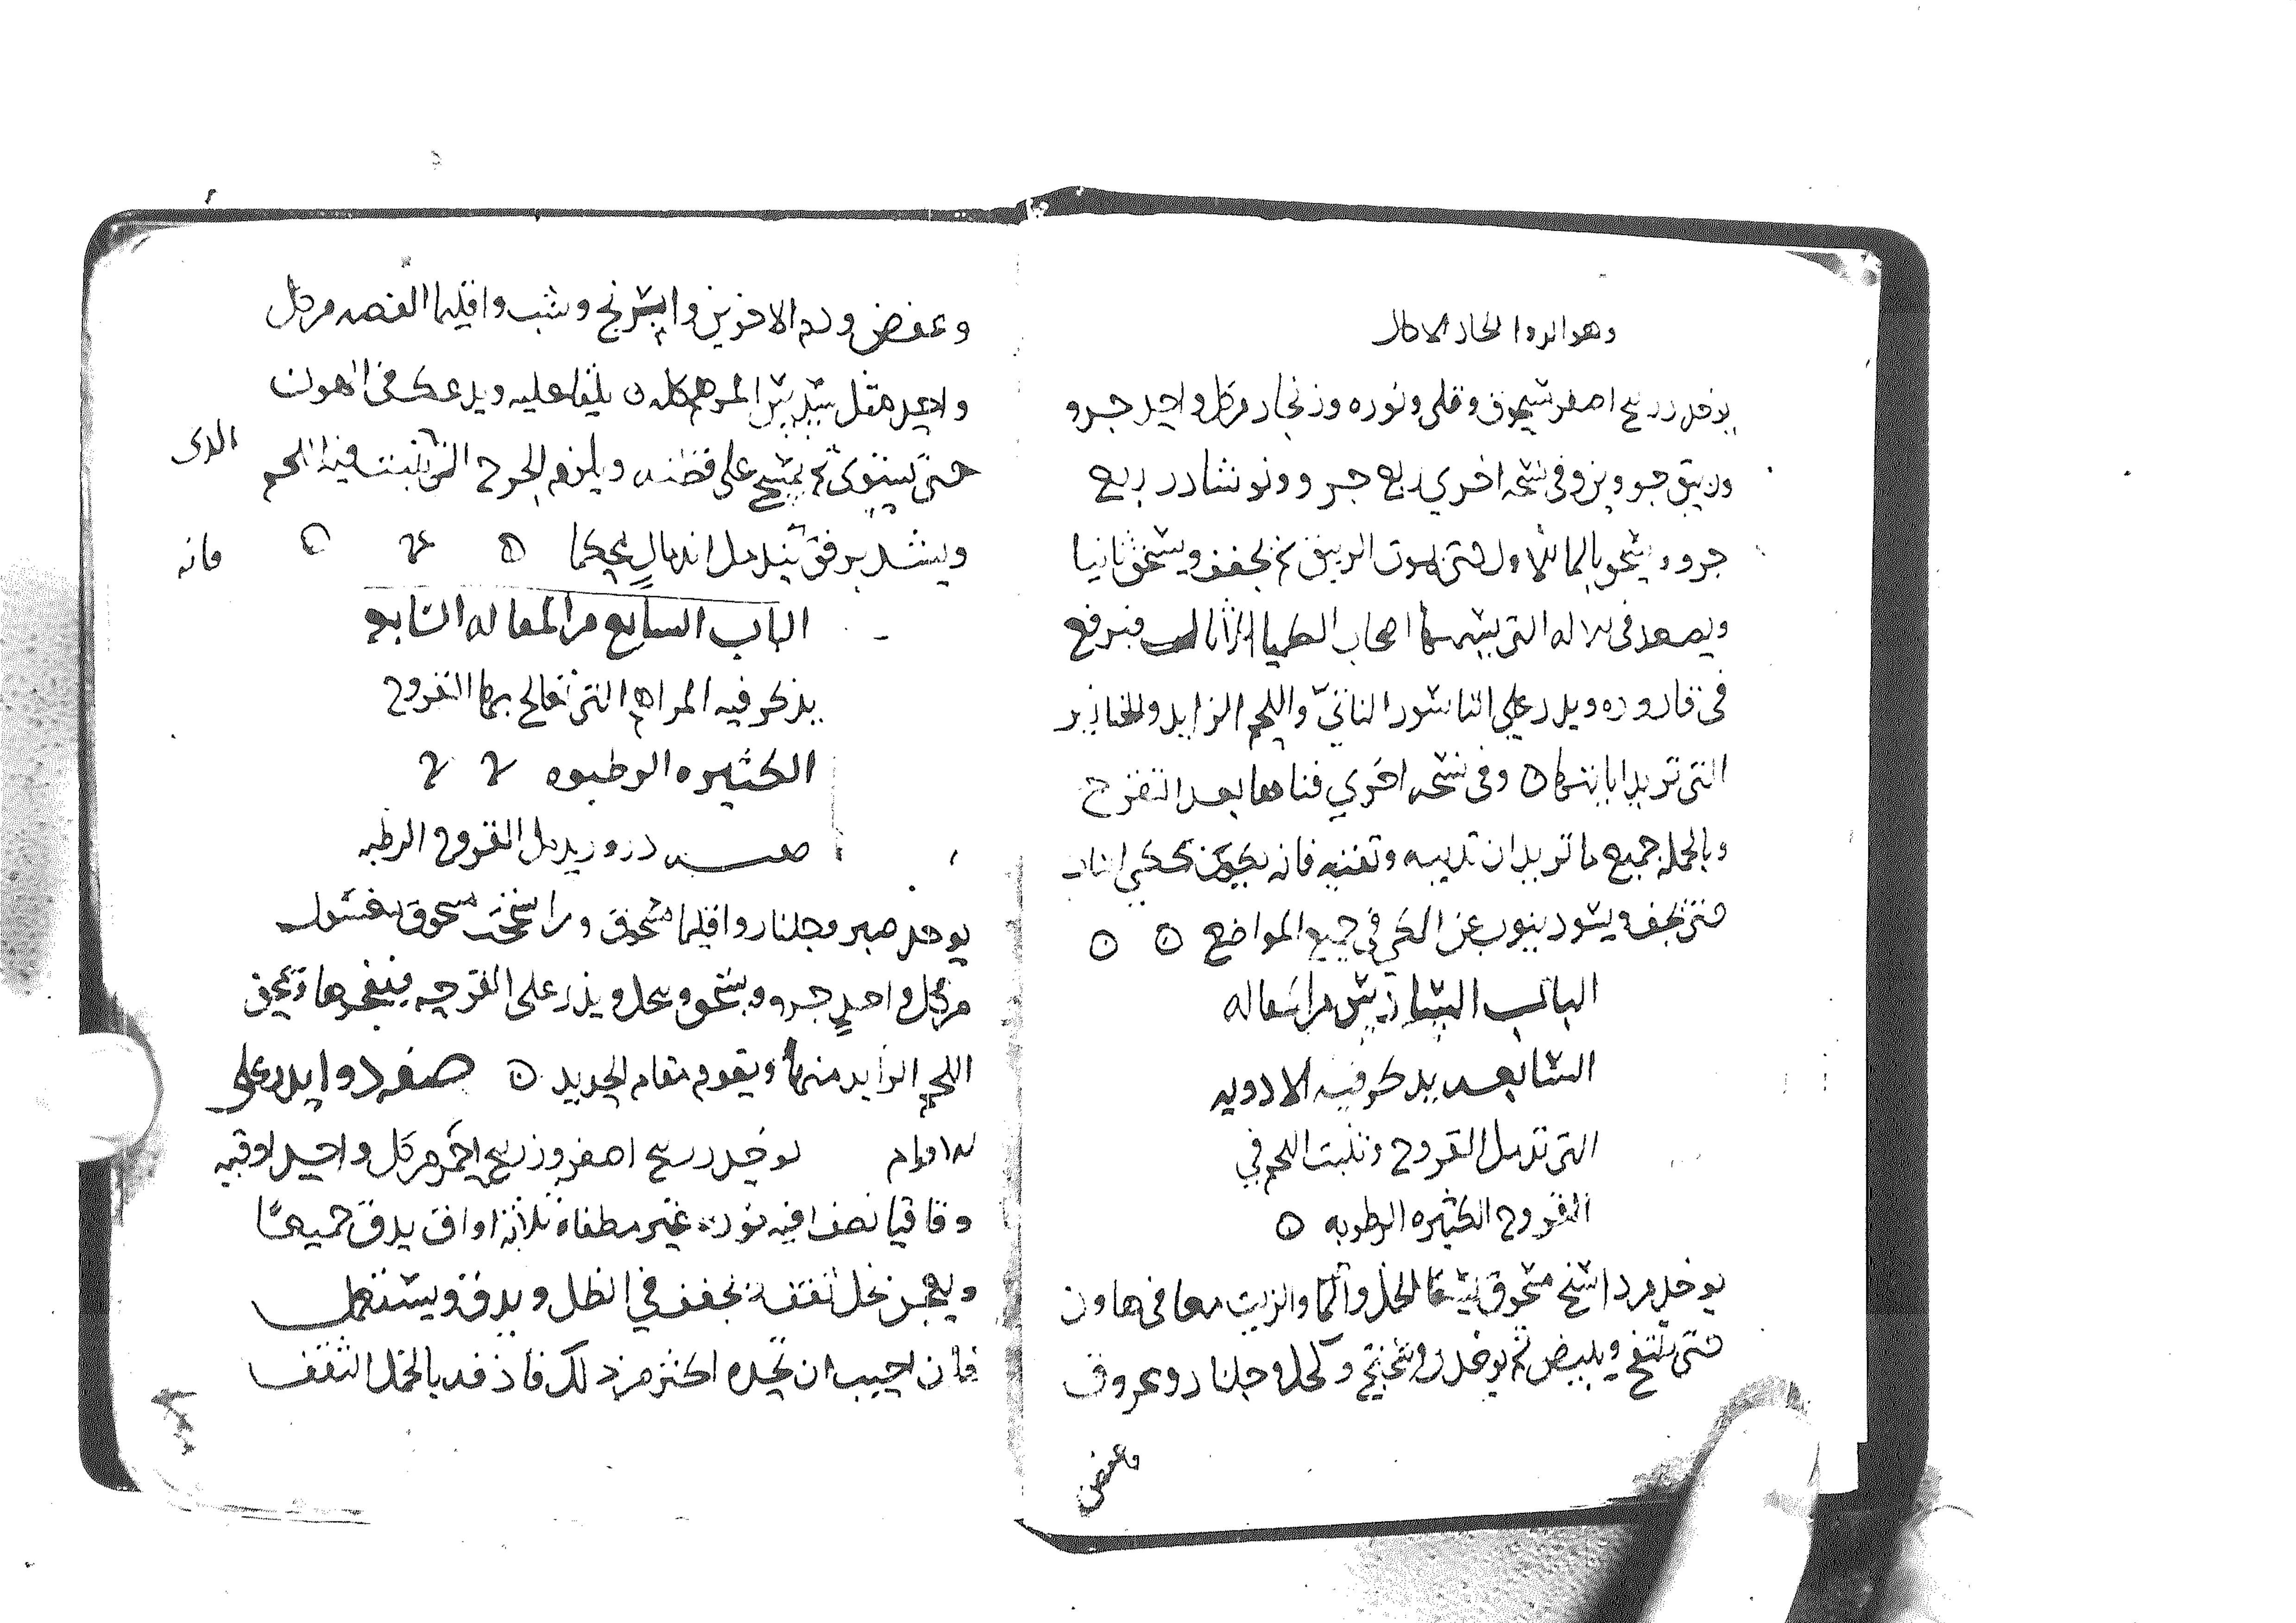 وهو الدوا الحاد الاكال
يوخد زرنيخ اصفر مسحوق وقلى ونوره وزنجار مر كل واحد جزو
وزيبق جزوين وفى نسخه اخري ربع جزو ونوشادر ربع
جزو ويسحق بالما الاول حتى يموت الزيبق ثم يجفف ويسحق ثانيا
ويصعد فى الاله التى يسميها اصحاب الكيميا الاثال فيرفع
فى قاروره ويدر على الناسور الناتى واللحم الزايد والخنازير
التى تريد ابانتها ن وفى نسخه اخري فناها بعد التقرح
وبالجمله جميع ما تريد ان تديبه وتفنيه فانه يكون ككي النار
حتى يجف ويسود ينوب عن الكي في جميع المواضع ن ن
الباب السادس من المقاله
السابعه يدكر فيه الادويه
التى تدمل القروح وتنبت اللحم في
القروح الكثيره الرطوبه ن
يوخد مرداسنج مسحوق يسقا الخل والما والزيت معا فى هاون
حتى ينتفخ ويبيض ثم يوخد روسختج وكحل وجلنار وعروق
وعفص
وعفص ودم الاخوين واسرنج وشب واقليما الفضه مر كل
واحد مثل سدس المرهم كله ن يلقا عليه ويدعك فى الهون
حتى يستوى ثم يمسح على قطنه ويلزم الجرح الذى نبت فيه اللحم
الدى
ويشد برفق يندمل اندمالٍ محكما ن
فانه
الباب السابع من المقاله السابعه
يذكر فيه المراهم التى تعالج بها القروح
الكثيره الرطوبه
صفه درور يدمل القروح الرطبه
يوخد صبر وجلنار واقليما مسحوق وراسخت مسحوق مغسول
مر كل واحدٍ جزو ويسحق وينخل ويذر على القرحه فينجفها وتمحق
اللحم الزايد منها ويقوم مقام الحديد ن صفه دوا يدر على
الاورام يوخد زرنيخ اصفر وزرنيخ احمر مر كل واحد اوقيه
وقاقيا نصف اوقيه نوره غير مطفاه ثلاثه اواق يدق جميعًا
ويعجن بخل ثقف ثم يجفف في الظل ويدق ويستعمل
فان احببت ان تجده اكثر من ذلك فاذفه بالخل الثقف